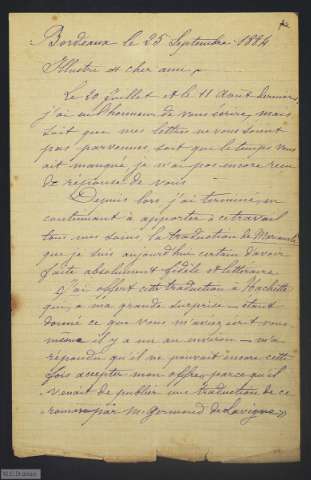 Bordeaux le 25 Septembre 1884
Illustre et cher ami,
Le 20 Juillet et le 11 Août derniers,
j'ai eu l'honneur de vous écrire, mais
soit que mes lettres ne vous soient
pas parvenues, soit que le temps vous
ait manqué je n'ai pas encore reçu
de réponse de vous.
Depuis lors j'ai terminé, en
continuant à apporter à ce travail
tous mes soins, la traduction de Marianela
que je suis aujourd'hui certain d'avoir
faite absolument fidèle et littéraire
J'ai offert cette traduction à Hachette
qui, à ma grande surprise – étant
donné ce que vous m'aviez écrit vous-
même il y a un an environ – m'a
répondu qu'il ne pouvait "encore cette
fois accepter mon offre, parce qu'il
venait de publier une traduction de ce
roman par M. Germond de Lavigne"